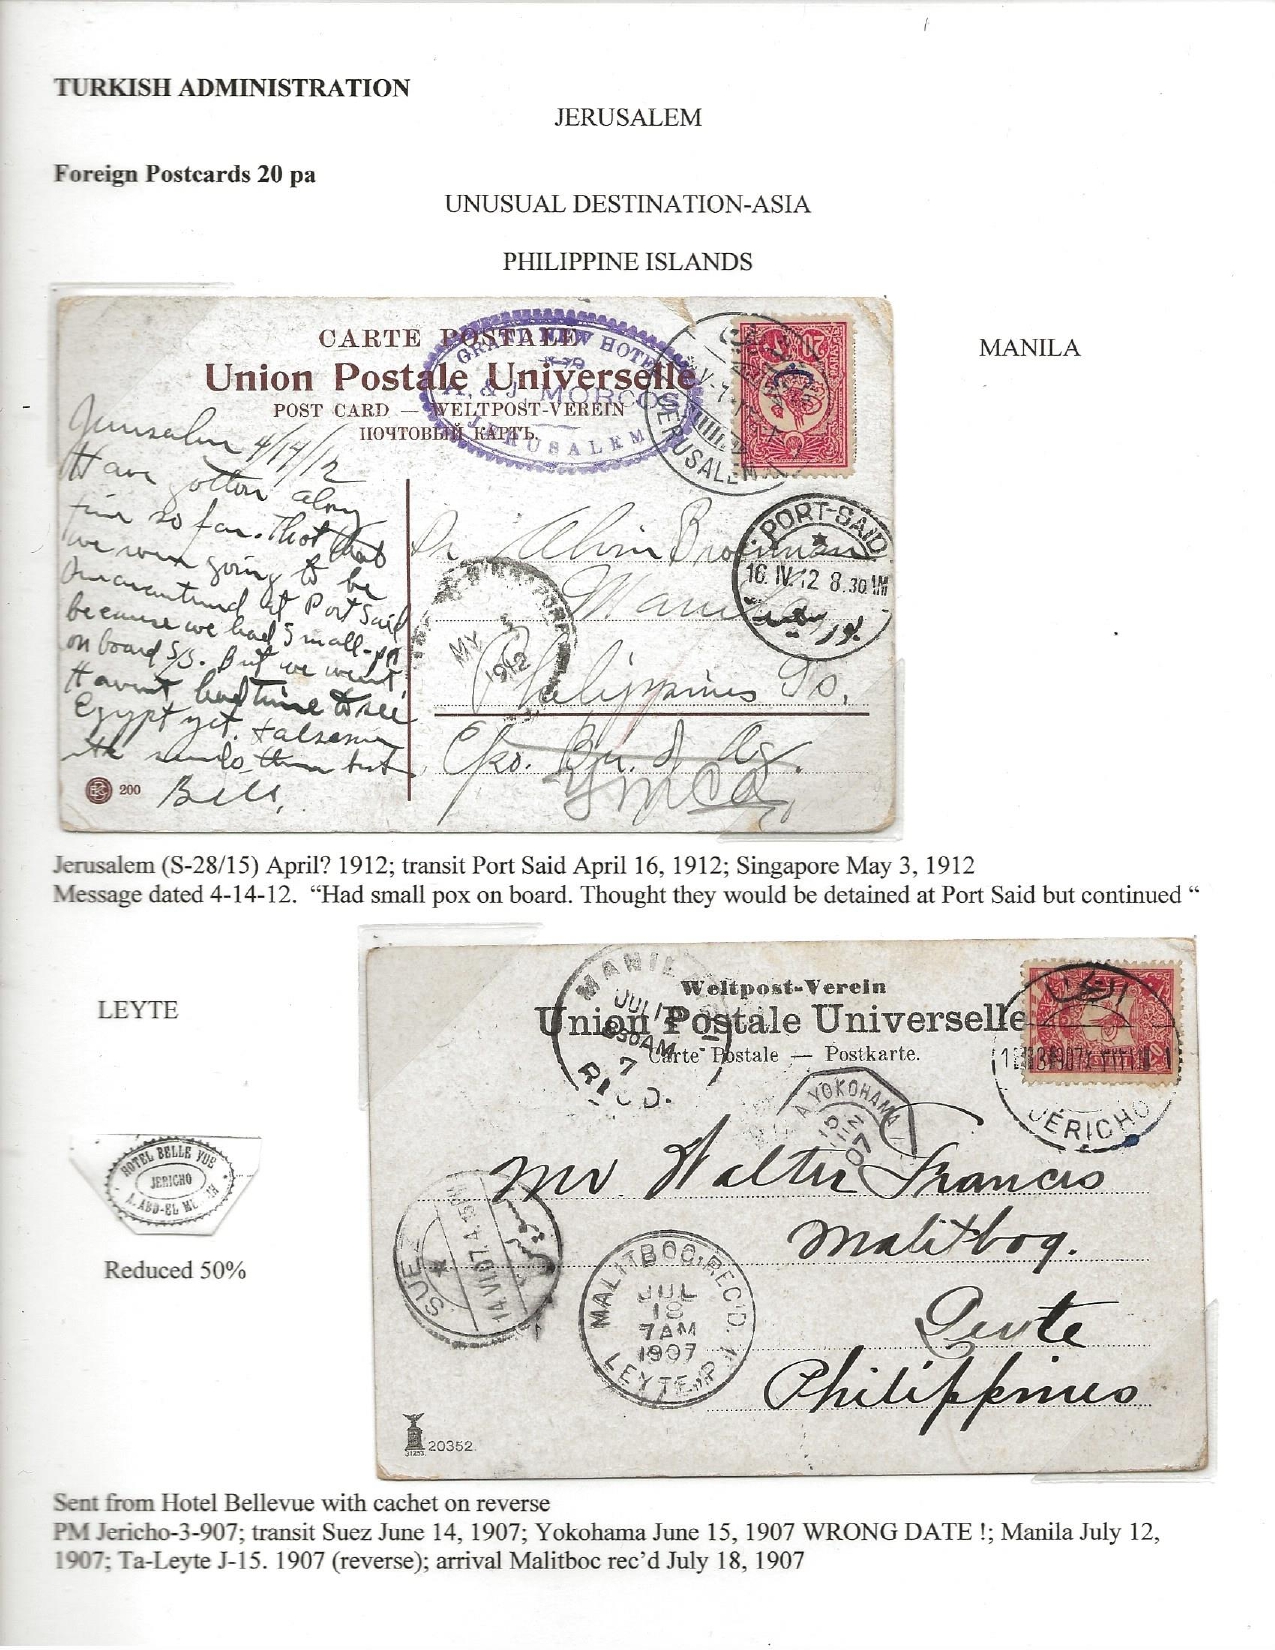 TURKISH ADMINISTRATION
JERUSALEM
Foreign Postcards 20 pa
UNUSUAL DESTINATION-ASIA
PHILIPPINE ISLANDS
MANILA
CARTE POSTALE
Union Postale Universelle
POST CARD — WELTPOST-VEREIN
ПОЧТОВЫЙ КАРТЪ.
GRAND NEW HOTEL
A. & J. MORCOS
JERUSALEM
JERUSALEM
PORT-SAID
16.IV.12 8.30 AM
بور سعيد
Jerusalem 4/14/12
Have gotten along
fine so far. Thot that
we were going to be
quarantined at Port Said
because we had small-pox
on board S/S. But we weren't.
Haven't had time to see
Egypt yet.
Bill.
Dr. Alvin
Manila
Philippines Is.
YMCA
SINGAPORE
MY 3
1912
200
Jerusalem (S-28/15) April? 1912; transit Port Said April 16, 1912; Singapore May 3, 1912
Message dated 4-14-12. “Had small pox on board. Thought they would be detained at Port Said but continued “
LEYTE
HOTEL BELLE VUE
JERICHO
Reduced 50%
Weltpost-Verein
Union Postale Universelle
Carte Postale — Postkarte.
MANILA
JUL 12
830AM
7
REC'D.
JERICHO
A YOKOHAMA
15
JUIN
07
SUEZ
14.VI.07.4
Mr Walter Francis
Malitbog.
Leyte
Philippines
MALITBOG, REC'D.
JUL
18
7AM
1907
LEYTE, P.I.
20352
Sent from Hotel Bellevue with cachet on reverse
PM Jericho-3-907; transit Suez June 14, 1907; Yokohama June 15, 1907 WRONG DATE !; Manila July 12,
1907; Ta-Leyte J-15. 1907 (reverse); arrival Malitboc rec’d July 18, 1907